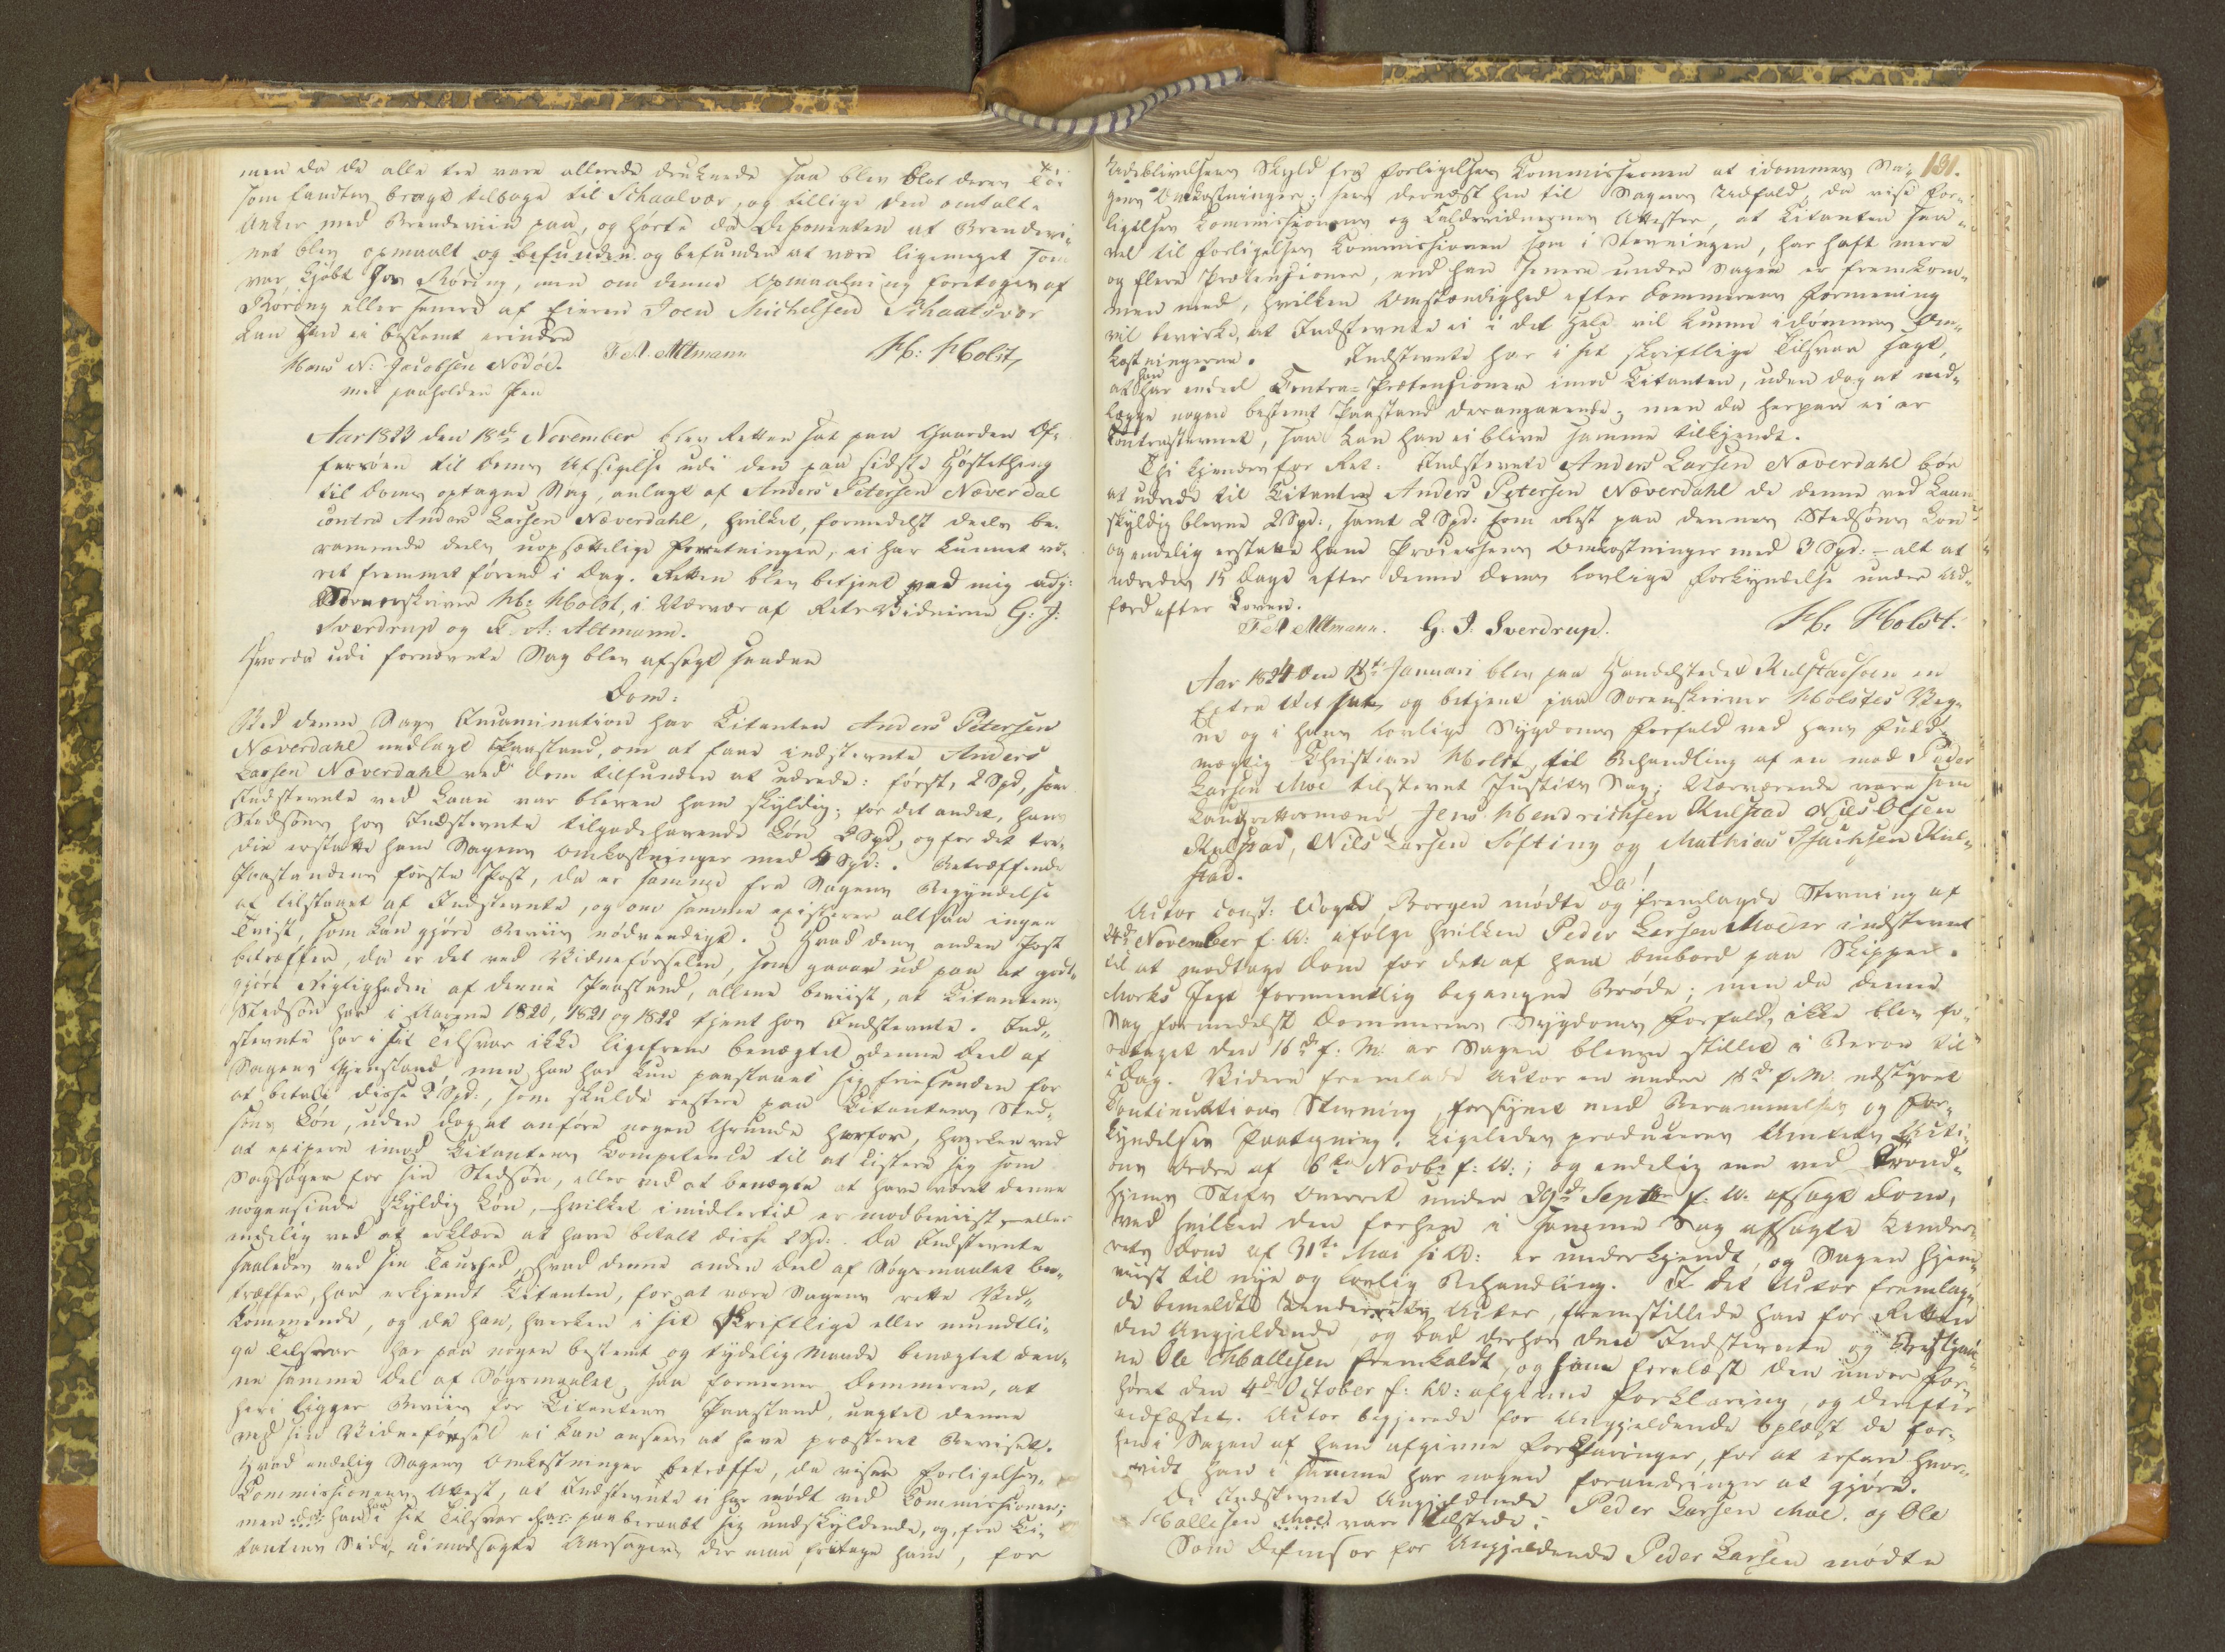 men da de alle tre vare allerede druknede saa blev blot deres Töi
som fandtes bragt tilbage til Schaalvær, og tillige den omtalte
Anker med Brendeviin paa, og hørte da Deponenten at Brendevi¬
net blev opmaalt og befunden og befunden at være ligemeget som
var kjöbt hos Röring, men om denne Opmaaling foretoges af
Röring eller senere af Eieren Joen Michelsen Schaalvær
kan han ei bestemt erindre
Hans N: Jacobsen Nödöe. F A Altmann H: Holst,
med paaholden Pen
Aar 1823 den 18de November blev Retten sat paa Gaarden Of¬
fersöen til Doms Afsigelse udi den paa sidste Höstething
til Doms optagne Sag, anlagt af Anders Petersen Næverdal
contra Anders Larsen Næverdahl, hvilket, formedelst deels be¬
rammede deels uopsættelige Forretninger, ei har kunnet væ¬
ret fremmet förend i Dag. Retten blev betjent ved mig adj:
Sorenskriver H: Holst, i Nærvær af Rets Vidnerne G: J:
Sverdrup og F. A: Altmann.
Hvorda udi fornævnte Sag blev afsagt saadan
Dom:
Ved denne Sags Incamination har Citanten Anders Petersen
Næverdahl nedlagt Paastand, om at faae indstevnte Anders
Larsen Næverdahl ved Dom tilfunden at udrede: først, 2 Spd, som
Indstevnte ved Laan var bleven ham skyldig; for det andet, hans
Stedsöns hos Indstevnte tilgodehavende Lön 2 Spd, og for det tre¬
die erstatte ham Sagens Omkostninger med 4 Spd: . Betræffende
Paastandens første Post, da er samme fra Sagens Begyndelse
af tilstaaet af Indstevnte, og om samme existerer altsaa ingen
Tvist, som kan gjöre Beviis nödvendigt. Hvad dens anden Post
betræffer, da er det ved Vidneförselen, som gaaer ud paa at godt¬
gjöre Rigtigheden af denne Paastand, allene beviist, at Citantens
Stedsön har i Aarene 1820, 1821 og 1822 tjent hos Indstevnte. Ind¬
stevnte har i sit Tilsvar ikke ligefrem benægtet denne Deel af
Sagens Gjenstand men han har kun paastaaet sig friefunden for
at betale disse 2 Spd:, som skulde restere paa Citantens Sted¬
söns Lön, uden dog at anföre nogen Grunde herfor, hverken ved
at excipere imod Citantens Competence til at listere sig som
Sagsöger for sin Stedsön, eller ved at benægte at have været denne
nogensinde skyldig Lön, hvilket imidlertid er modbeviist, eller
endelig ved at erklære at have betalt disse 2 Spd: . Da Indstevnte
saaledes ved sin Taushed, hvad denne anden Deel af Søgsmaalet be¬
træffer, har erkjendt Citanten, for at være Sagens rette Ved¬
kommende, og da han, hverken i sit skriftlige eller mundtli¬
ge Tilsvar har paa nogen bestemt og tydelig Maade benægtet den¬
ne samme Del af Søgsmaalet, saa formener Dommeren, at
heri ligger Beviis for Citantens Paastand, uagtet denne
ved sin Vidneförsel ei kan ansees at have præsteret Beviset.
Hvad endelig Sagens Omkostninger betræffe, da viser Forligelses
Commissionens Attest, at Indstevnte ei har mödt ved Commissionen;
men da han i sit Tilsvar har paaberaabt sig undskyldende, og, fra Ci¬
tantens Side, uimodsagte Aarsager, der maa fritage ham, for
131.
Udeblivelsens Skyld fra Forligelses Commissionen at idømmes Sa¬
gens Omkostninger; sees dernæst hen til Sagens Udfald, da vise For¬
ligelses Commissionens og Kaldsvidnernes Attester, at Citanten saa¬
vel til Forligelses Commissionen som i Stevningen, har haft mere
og flere Prætensioner, end han senere under Sagen er fremkom¬
men med, hvilken Omstændighed efter Dommerens Formening
vil bevirke, at Indstevnte ei i det Hele vil kunne idömmes Om¬
kostningerne. Indstevnte har i sit skriftlige Tilsvar sagt,
at han har endeel Contra-Prætensioner imod Citanten, uden dog at ned¬
lægge nogen bestemt Paastand derangaaende; men da herpaa ei er
Contrastevnet, saa kan han ei blive samme tilkjendt.
Thi kjendes for Ret: Indstevnte Anders Larsen Næverdahl bör
at udrede til Citanten Anders Petersen Næverdahl de denne ved Laan
skyldig blevne 2 Spd:, samt 2 Spd: som Rest paa dennes Stedsöns Lön
og endelig erstatte ham Processens Omkostninger med 3 Spd: - alt at
udredes 15 Dage efter denne Doms lovlige Forkyndelse under Ad¬
færd efter Loven.
F A Altmann. G. J. Sverdrup. H. Holst.
Aar 1824 den Januari blev paa Handelstedet Rulstadsöen en
Extra Ret sat og betjent paa Sorenskriver Holstes Veg¬
ne og i hans lovlige Sygdoms Forfald ved hans Fuld¬
mægtig Christian Holst, til Behandling af en mod Peder
Larsen Moe tilstevnet Justits Sag; Nærværende vare som
Laugrettesmænd Jens Hendrichsen Kulstad Niels Olsen
Kulstad, Niels Larsen Söfting og Mathias Isachsen Kul¬
stad.
Da!
Actor const: Foged Borgen mødte og fremlagde Stevning af
24de November f: A: ifølge hvilken Peder Larsen Moe er indstevnet
til at modtage Dom for det af ham ombord paa Skipper
Morks Jegt formentlig begangne Bröde; men da denne
Sag formedelst Dommerens Sygdoms Forfald, ikke blev fo¬
retaget den 16de f: M: er Sagen bleven stillet i Beroe til
i Dag. Videre fremlagde Actor en under 16de f. M. udstædt
Continuations Stevning, forsynet med Berammelses og For¬
kyndelses Paategning. Ligeledes producerer Amtets Acti¬
ons Ordre af 6te Novbr f: A:; og endelig en ved Trond¬
hjems Stifts Overret under 29de Septbr f: A: afsagt Dom,
ved hvilken den forhen i samme Sag afsagte Under¬
rets Dom af 31te Mai f: A: er underkjendt, og Sagen hjem¬
viist til nye og lovlig Behandling. I det Actor fremlag¬
de bemeldte Underrets Acter, fremstillede han for Retten
den Angjeldende, og bad derhos den Indstevnte og
Ole Hallesen fremkaldt, og ham forelæst den under For¬
höret den 4de October f: A: afgivne Forklaring, og derefter
edfæstet. Actor begjerede for Angjeldende oplæst de for¬
hen i Sagen af ham afgivne Forklaringer, for at erfare hvor¬
vidt han i samme har nogen Forandringer at gjöre.
De Indstevnte Angjeldende Peder Larsen Moe. og Ole
Hallesen Moe vare tilstede;
Som Defensor for Angjeldende Peder Larsen mødte